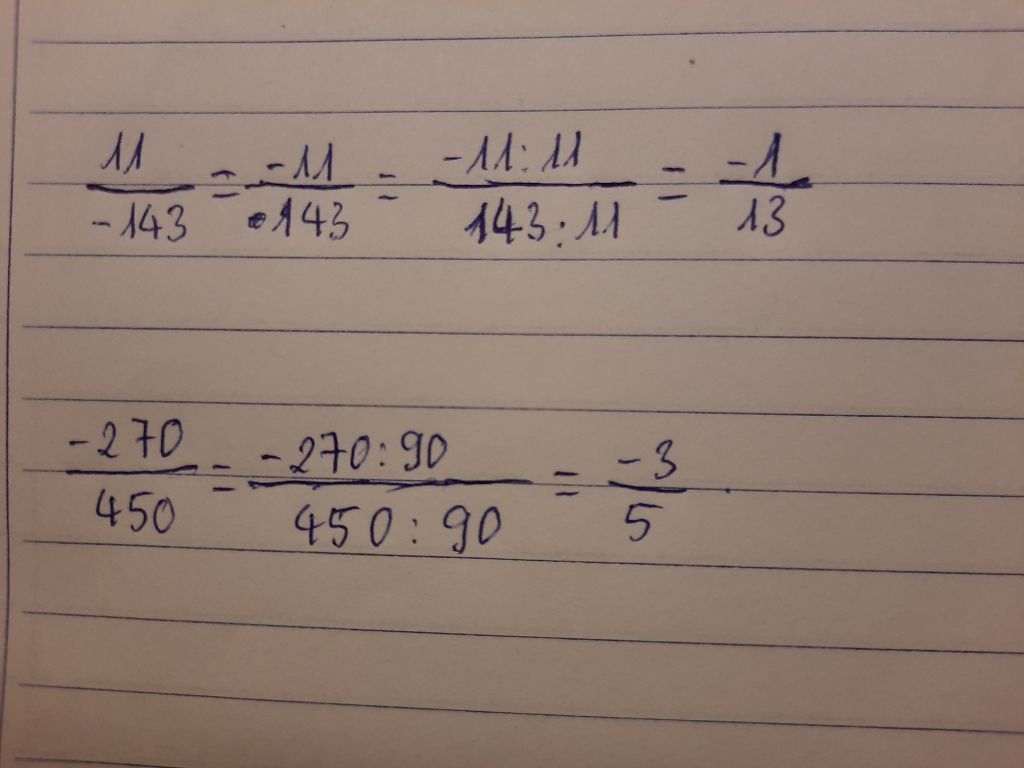 11/-143 = -11/143 = -11:11/143:11 = -1/13
-270/450 = -270:90/450:90 = -3/5